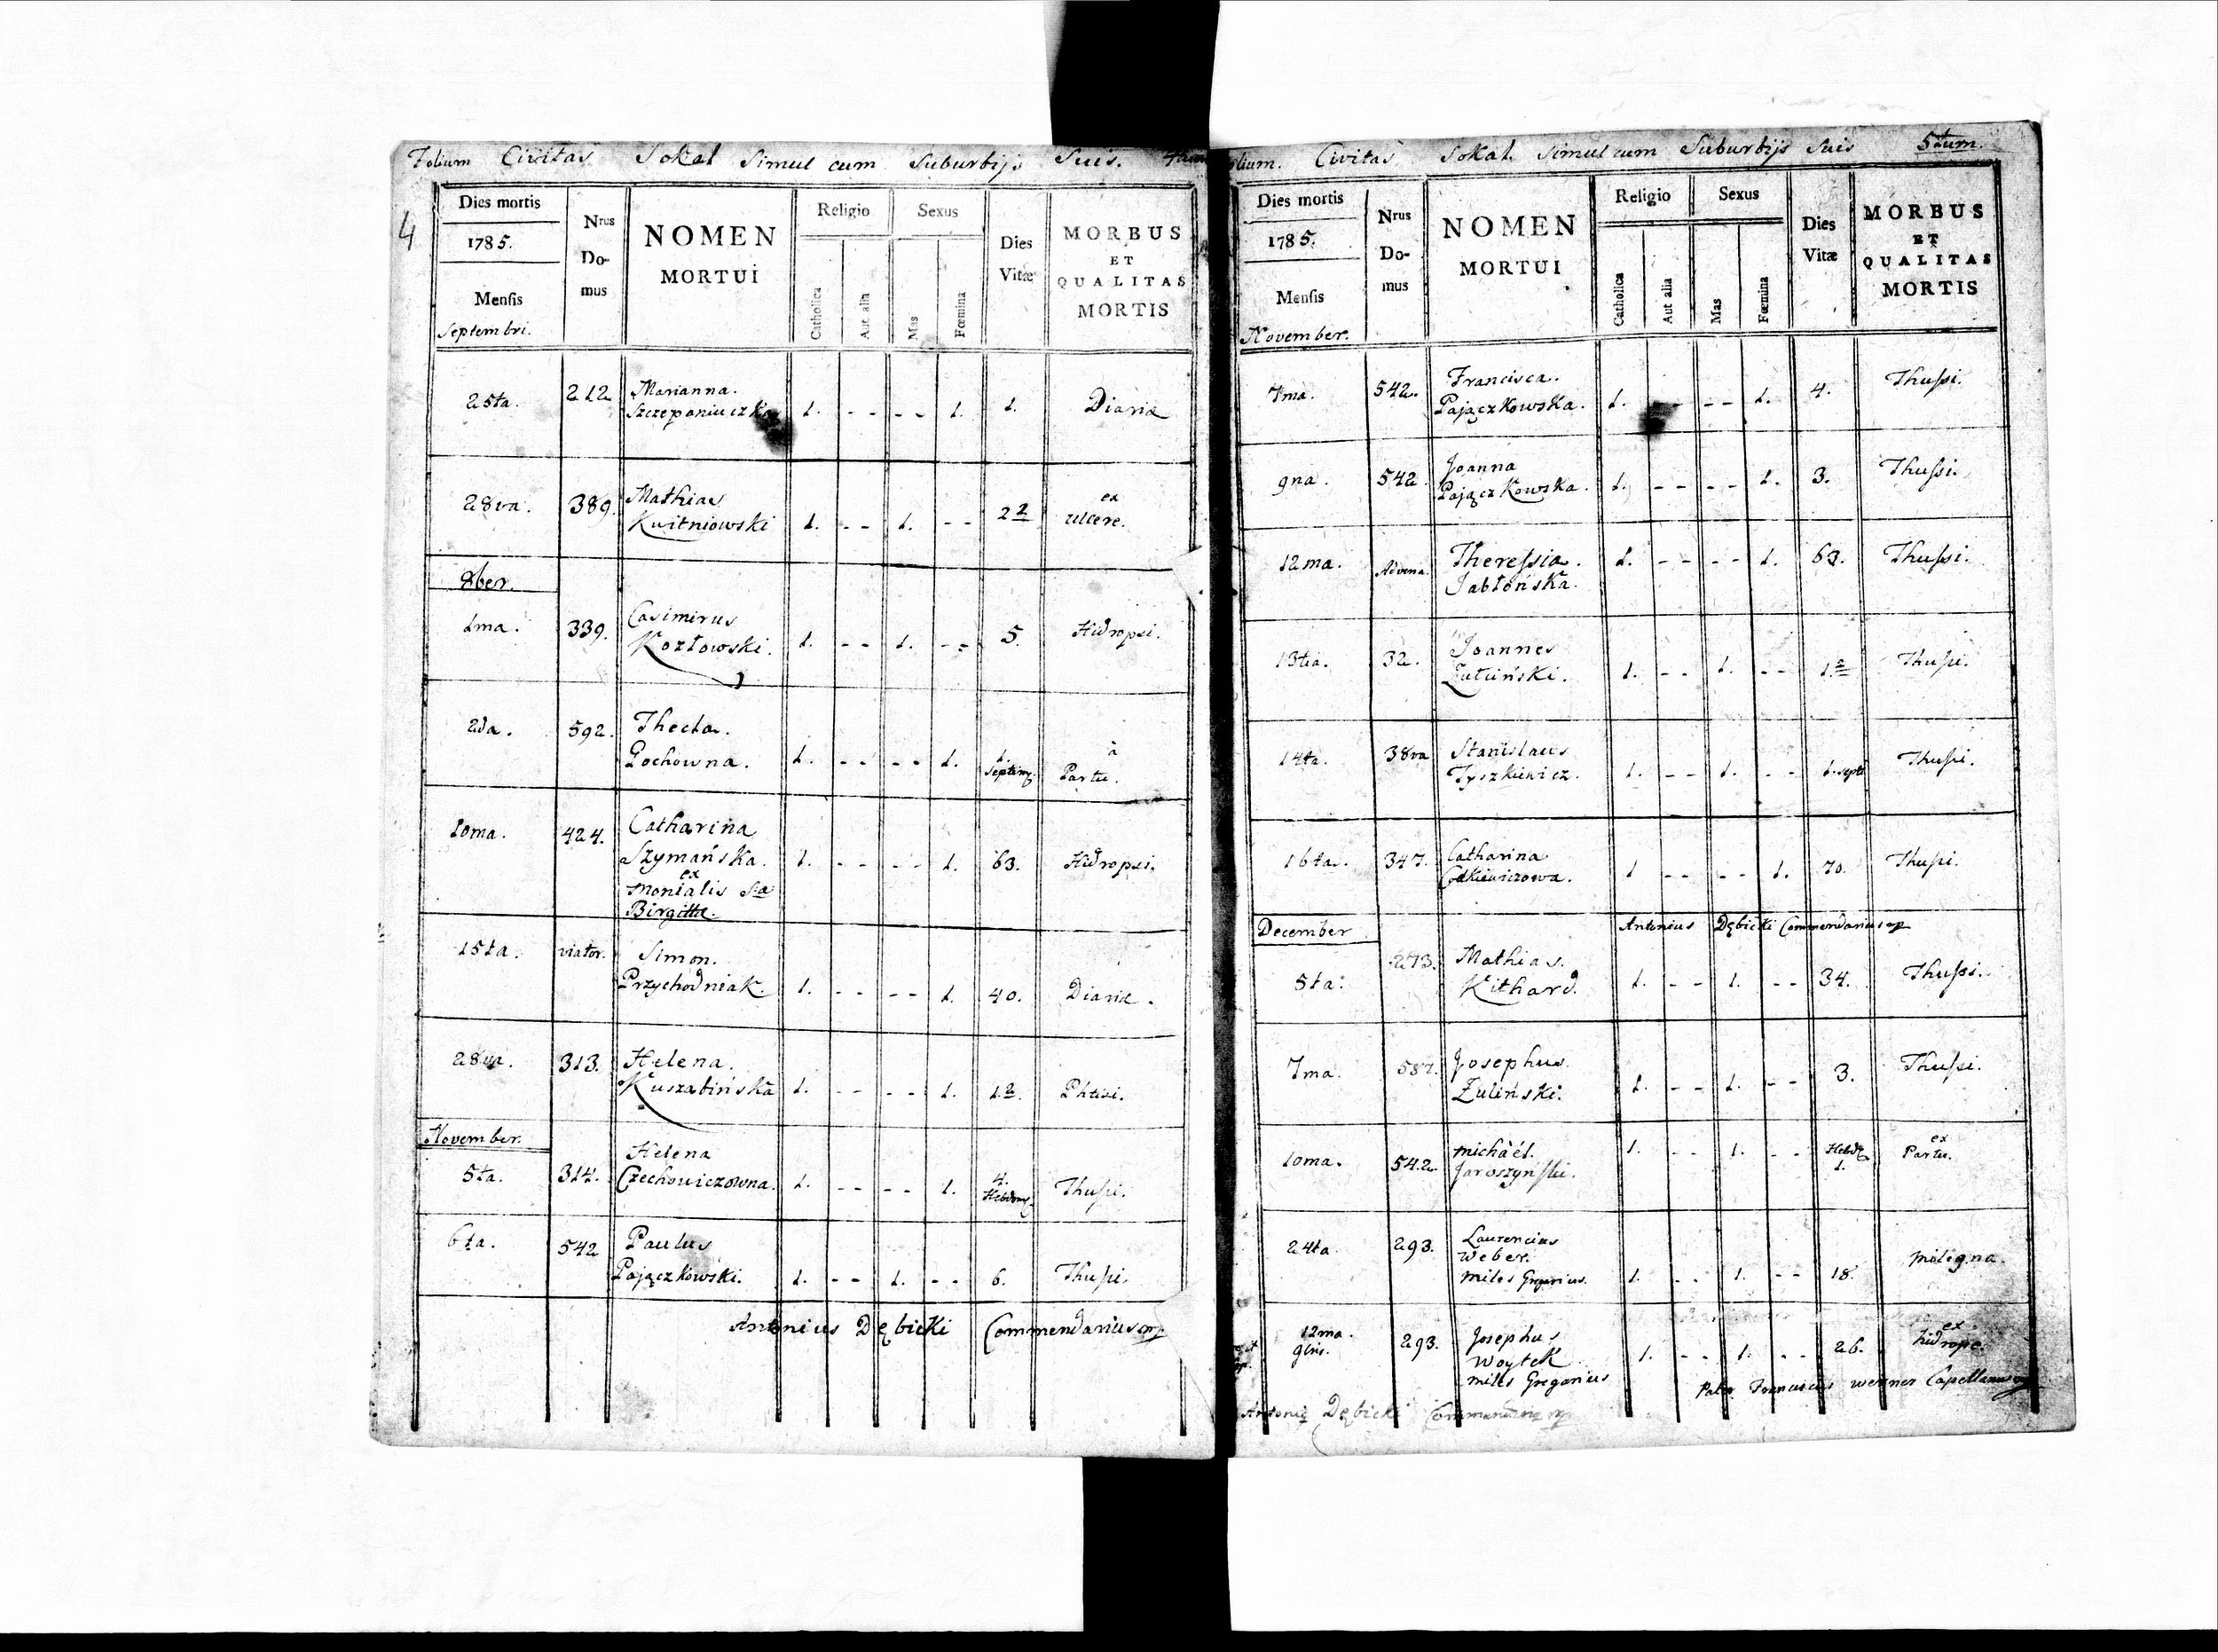 Folium Civitas Sokal Simul cum Suburbijs Suis. 4tum
4
Dies mortis
1785.
Mensis
Septembri.
Nrus Domus
NOMEN
MORTUI
Religio
Catholica
Aut alia
Sexus
Mas
Fœmina
Dies
Vitæ
MORBUS
ET
QUALITAS
MORTIS
25ta. 212 Marianna. Szczepaniuczka 1. - - - - 1. 1. Diaria
28va. 389. Mathias Kwitniowski 1. - - 1. - - 2 2 ex ulcere.
8ber.
1ma. 339. Casimirus Kozłowski. 1. - - 1. - - 5. Hidropsi.
2da. 592. Thecla. Gochowna. 1. - - - - 1. 1. Septim. à Partu.
10ma. 424. Catharina Szymańska. ex monialis Sta Birgittæ. 1. - - - - 1. 63. Hidropsi.
15ta. viator. Simon. Przychodniak. 1. - - - - 1. 40. Diaria.
28va. 313. Helena. Kuszabińska 1. - - - - 1. 1 2. Phtisi.
November.
5ta. 314. Helena Czechowiczowna. 1. - - - - 1. 4. Hebdom. Thussi.
6ta. 542 Paulus Pajączkowski. 1. - - 1. - - 6. Thussi.
Antonius Dębicki Commendarius mp
Folium. Civitas Sokal. Simul cum Suburbijs Suis 5tum.
Dies mortis
1785.
Mensis
November.
Nrus Domus
NOMEN
MORTUI
Religio
Catholica
Aut alia
Sexus
Mas
Fœmina
Dies
Vitæ
MORBUS
ET
QUALITAS
MORTIS
7ma. 542. Francisca. Pajączkowska. 1. - - - - 1. 4. Thussi.
9na. 542. Joanna Pajączkowska. 1. - - - - 1. 3. Thussi.
12ma. Advena. Theressia. Jabłońska. 1. - - - - 1. 63. Thussi.
13tia. 32. Joannes Żuliński. 1. - - 1. - - 1 2 Thussi.
14ta. 38va Stanislaus Tyszkiewicz. 1. - - 1. - - 1. Sept. Thussi.
16ta. 347. Catharina 1 - - - - 1. 70. Thussi.
Antonius Dębicki Commendarius mp
December
5ta. 273. Mathias. Kithard. 1. - - 1. - - 34. Thussi.
7ma. 587. Josephus. Żuliński. 1. - - 1. - - 3. Thussi.
10ma. 542. Michaël. Jaroszyński. 1. - - 1. - - Hebd. 1. ex Partu.
24ta. 293. Laurencius Weber. Miles Gregarius. 1. - - 1. - - 18. Maligna.
12ma. 9bris. 293. Josephus Woytek Miles Gregarius 1. - - 1. - - 26. ex hidrope.
Pater Franciscus Werner Capellanus mp
Antonius Dębicki Commendarius mp